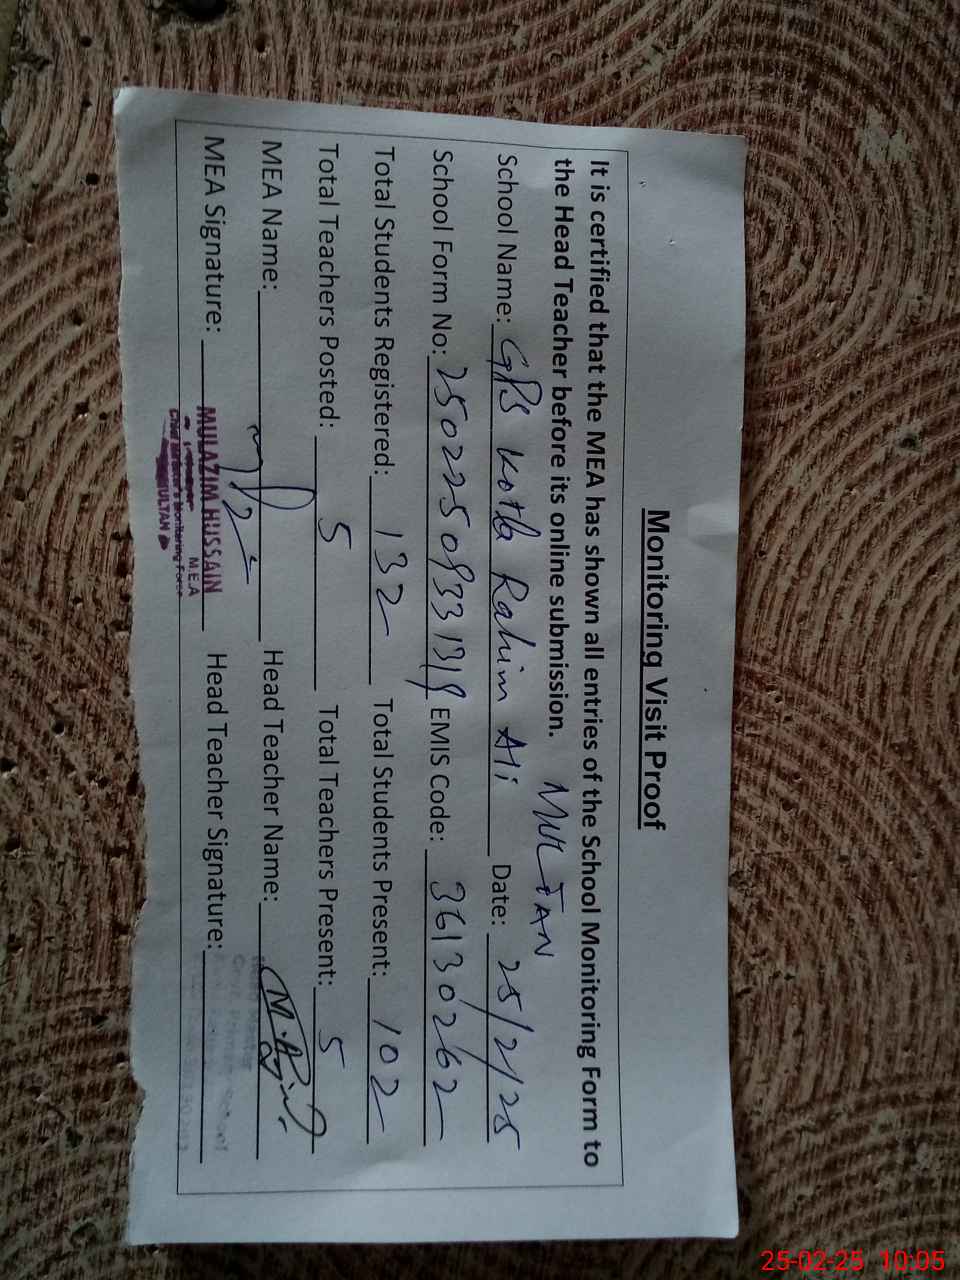 Monitoring Visit Proof
It is certified that the MEA has shown all entries of the School Monitoring Form to
the Head Teacher before its online submission. MULTAN
School Name: GPS Kotla Rahim Ali Date: 25/2/25
School Form No: EMIS Code: 36130262
Total Students Registered: 132 Total Students Present: 102
Total Teachers Posted: 5 Total Teachers Present: 5
MEA Name: Head Teacher Name:
MEA Signature: Head Teacher Signature:
MULAZIM HUSSAIN
M.E.A
Chief Minister's Monitoring Force
MULTAN
25-02-25 10:05